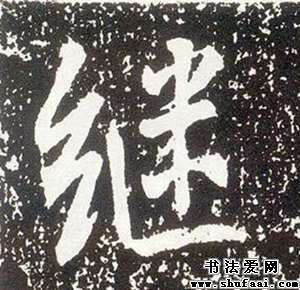 继
书法爱网
www.shufaai.com